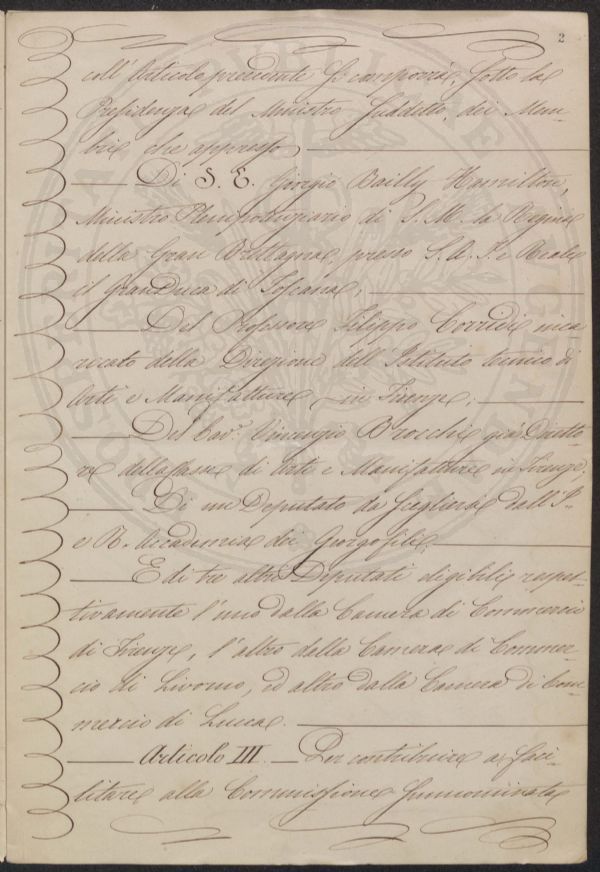 2
coll'Articolo precedente Si comporrà, sotto la
Presidenza del Ministro Suddetto, dei Mem-
bri che appresso,
Di S. E. Giorgio Bailly Hamilton,
Ministro Plenipotenziario di S. M. la Regina
della Gran Brettagna, presso S. A. I. e Reale
il Gran Duca di Toscana;
Del Professore Filippo Corridi inca
ricato della Direzione dell'Istituto tecnico di
Arti e Manifatture in Firenze;
Del Cav.r Vincenzio Brocchi già Diretto
re della Classe di Arti e Manifatture in Firenze;
Di un Deputato da Scegliersi dell'I.
e R. Accademia dei Georgofili;
E di tre altri Deputati eligibili respet-
tivamente l'uno dalla Camera di Commercio
di Firenze, l'altro dalla Camera di Commer-
cio di Livorno, ed altro dalla Camera di Com-
mercio di Lucca.
Articolo III. Per contribuire a faci-
litare alla Commissione Sunnominata